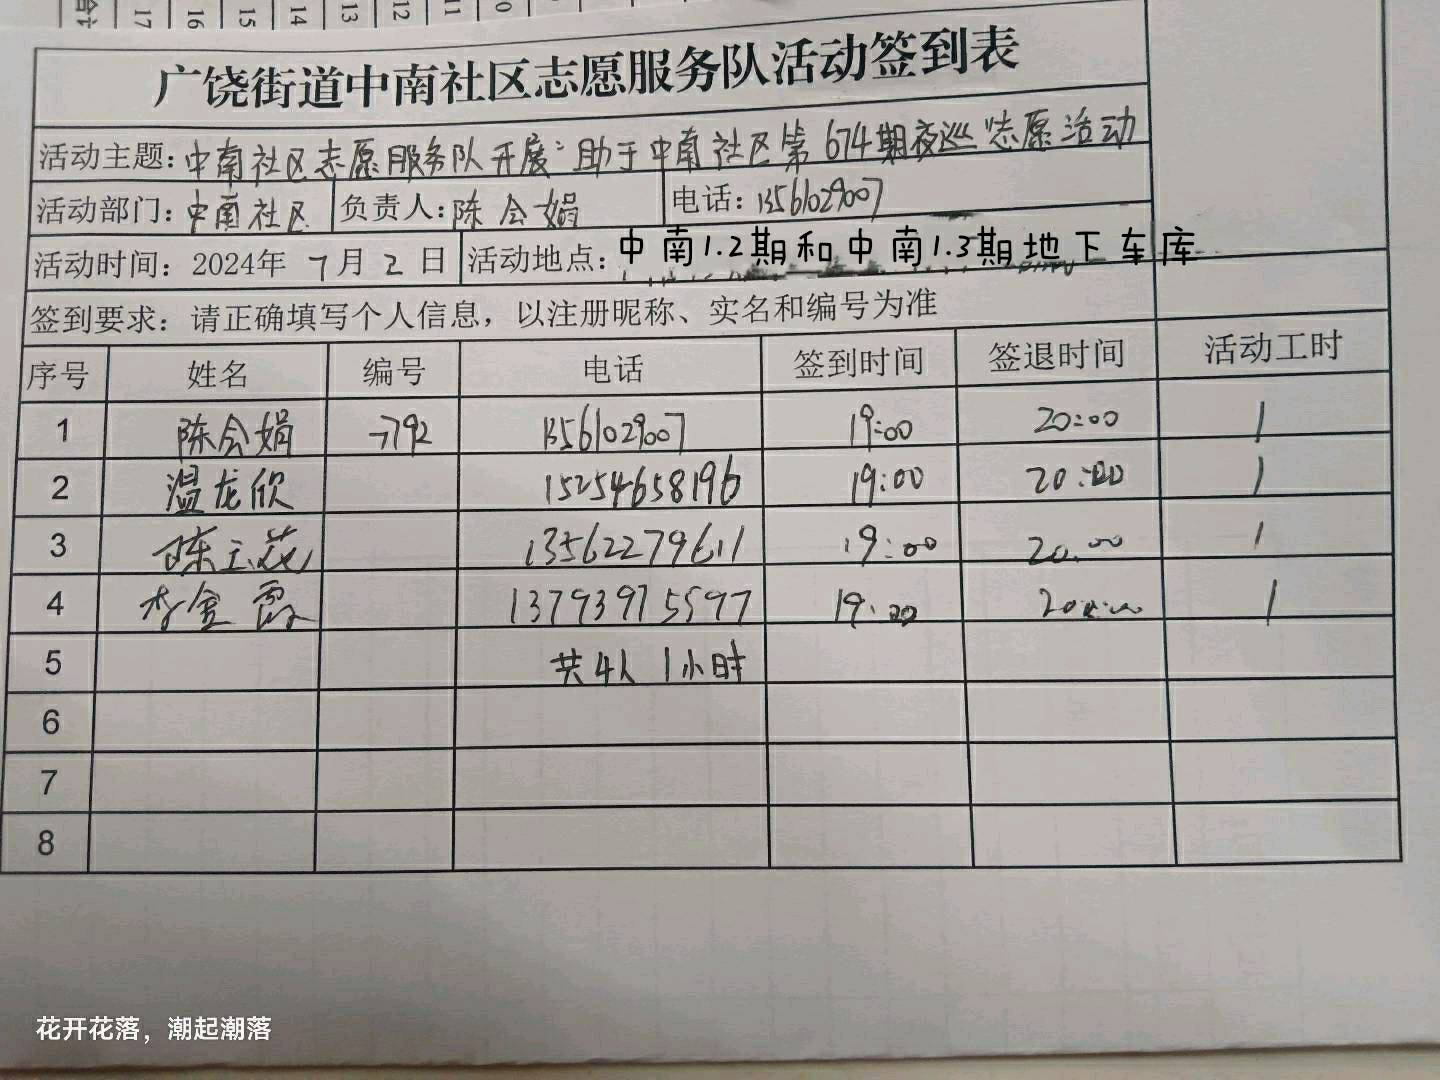 合计 17 16 15 14 13 12 11
广饶街道中南社区志愿服务队活动签到表
活动主题：中南社区志愿服务队开展“助于中南社区第674期夜巡”志愿活动
活动部门：中南社区 负责人：陈会娟 电话：13561029007
活动时间：2024年 7月 2 日 活动地点：中南1.2期和中南1.3期地下车库
签到要求：请正确填写个人信息，以注册昵称、实名和编号为准
序号 姓名 编号 电话 签到时间 签退时间 活动工时
1 陈会娟 7792 13561029007 19:00 20:00 1
2 温龙欣 15254658196 19:00 20:00 1
3 陈立花 13562279611 19:00 20:00 1
4 李金霞 13793975597 19:00 20:00 1
5 共4人 1小时
6
7
8
花开花落，潮起潮落